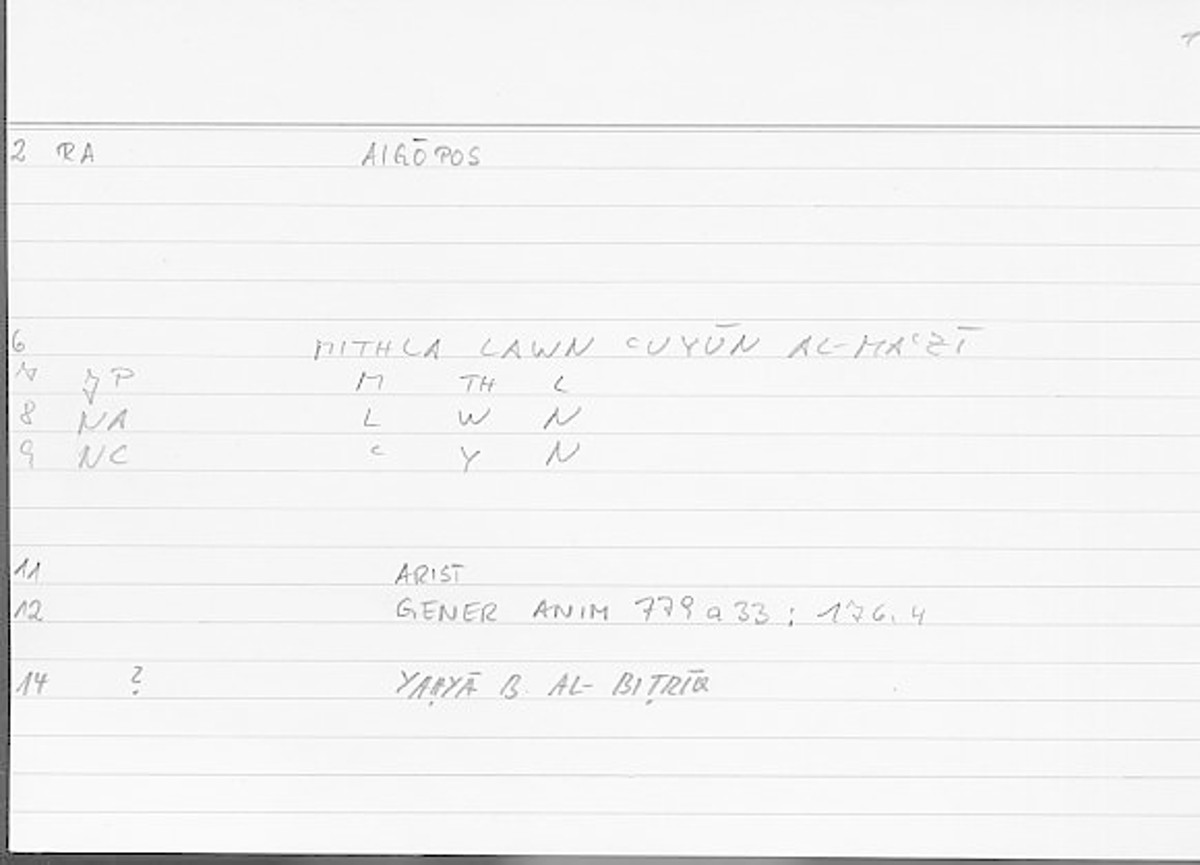 1
2 RA AIGŌPOS
6 MITHLA LAWN ʿUYŪN AL-MAʿZĪ
7 JP M TH L
8 NA L W N
9 NC ʿ Y N
11 ARIST
12 GENER ANIM 779 a 33 ; 176.4
14 ? YAḤYĀ B. AL-BIṬRĪQ